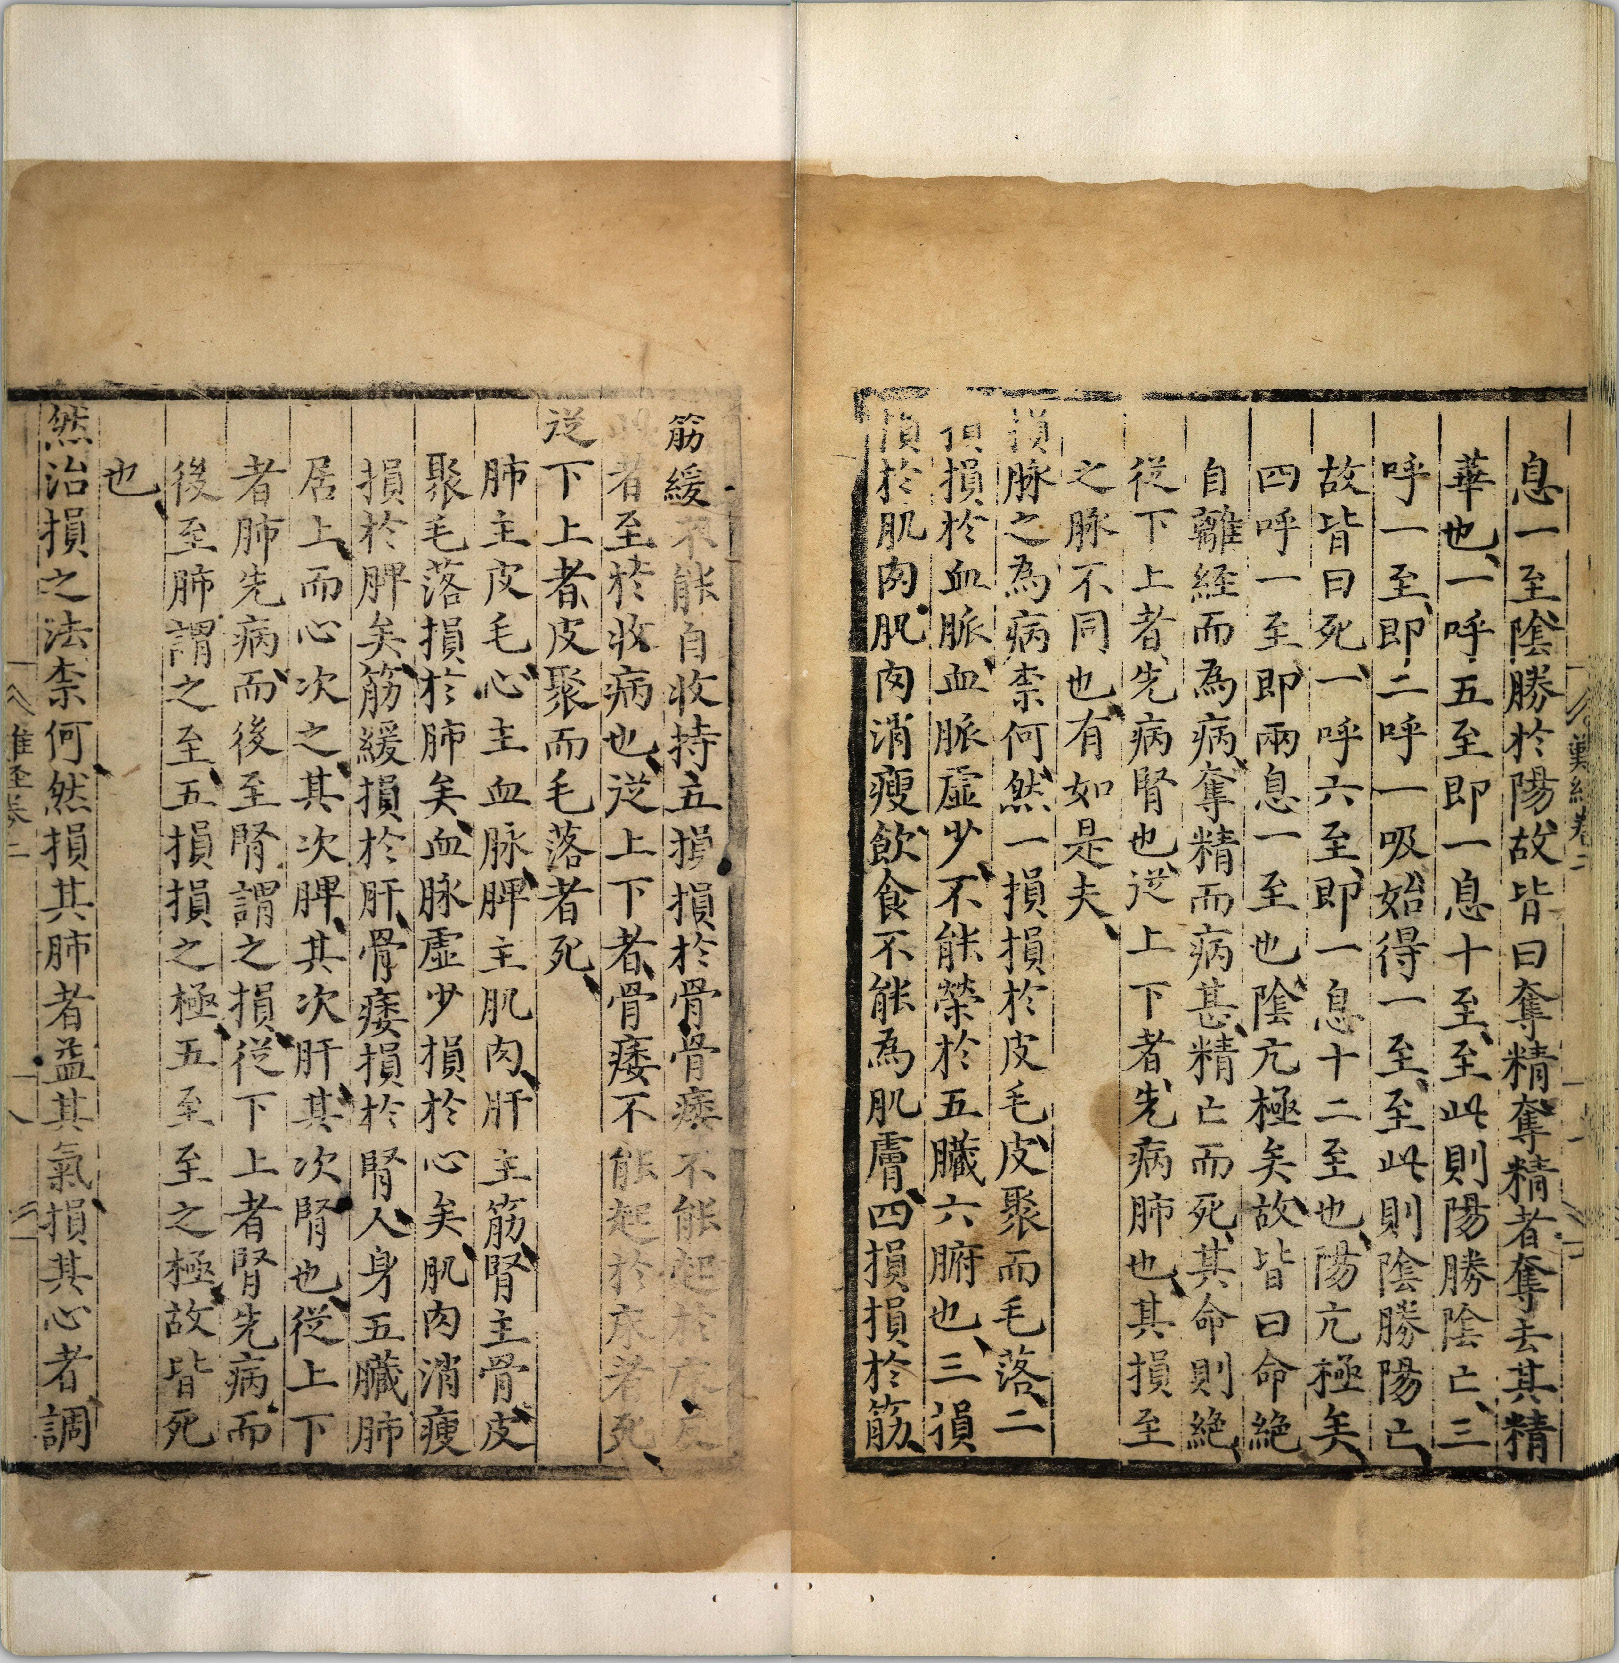 息一至隂勝於陽故皆曰奪精奪精者奪去其精
華也一呼五至即一息十至至此則陽勝隂亡三
呼一至即二呼一吸始得一至至此則陰勝陽亡
故皆曰死一呼六至即一息十二至也陽亢極矣
四呼一至即兩息一至也隂亢極矣故皆曰命絶
自離経而為病奪精而病甚精亡而死其命則絶
從下上者先病腎也從上下者先病肺也其損至
之脉不同也有如是夫
損脉之為病柰何然一損損於皮毛皮聚而毛落二
損損於血脈血脈虛少不能榮於五臟六腑也三損
損於肌肉肌肉消瘦飲食不能為肌膚四損損於筋
難經卷二
筋緩不能自收持五損損於骨骨痿不能起於床反
此者至於收病也從上下者骨痿不能起於床者死
從下上者皮聚而毛落者死
肺主皮毛心主血脉脾主肌肉肝主筋腎主骨皮
聚毛落損於肺矣血脉虛少損於心矣肌肉消瘦
損於脾矣筋緩損於肝骨痿損於腎人身五臟肺
居上而心次之其次脾其次肝其次腎也從上下
者肺先病而後至腎謂之損從下上者腎先病而
後至肺謂之至五損損之極五至至之極故皆死
也
然治損之法柰何然損其肺者益其氣損其心者調
難經卷二
八